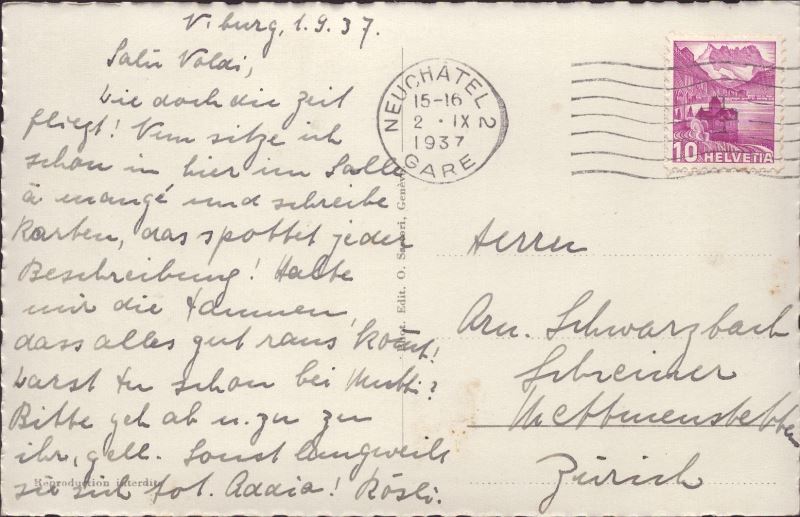 N. burg, 1.9.37.
Salü Voldi,
Wie doch die Zeit
fliegt! Nun sitze ich
schon in hier im Salle
à mangé und schreibe
Karten, das spottet jeder
Beschreibung! Halte
mir die Daumen,
dass alles gut raus kommt!
Warst Du schon bei Mutti?
Bitte geh ab u. zu zu
ihr, gell. Sonst langweilt
sie sich tot. Addio! Rösli.
Reproduction interdite
Edit. O. Sartori, Genève
NEUCHATEL 2
15-16
2 · IX
1937
GARE
10 HELVETIA
Herrn
Arn. Schwarzbach
Schreiner
Mettmenstetten
Zürich